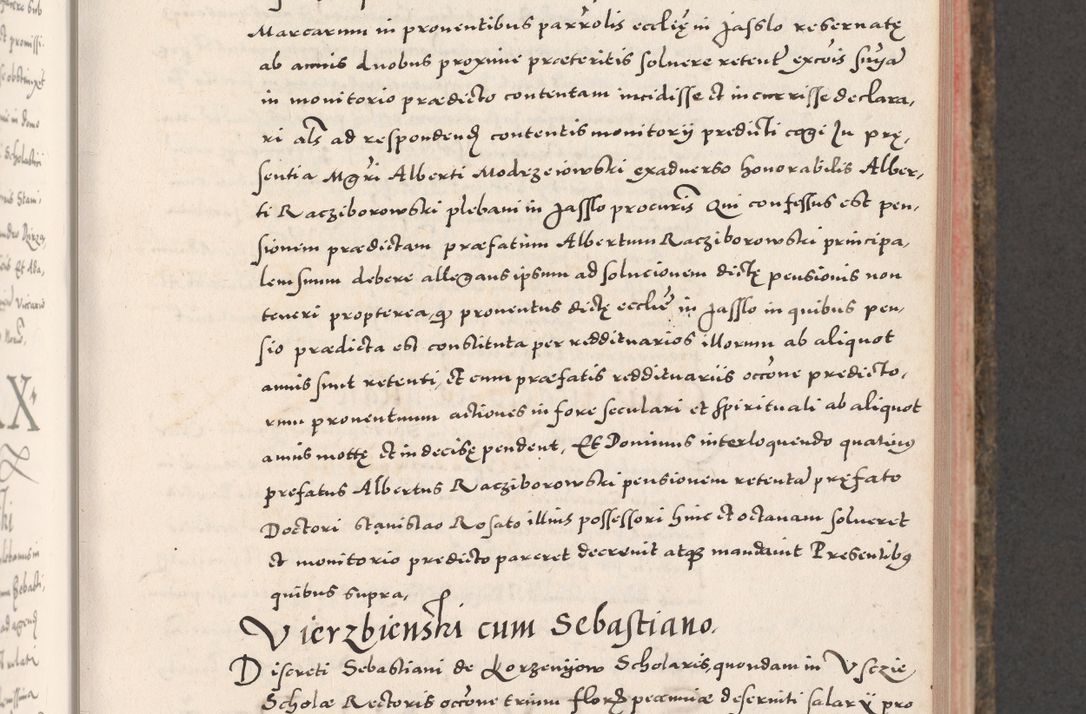 Marcarum in proventibus parrolis ecclię in Jasslo reservatę
ab annis duobus proxime præteritis solvere retent excois snȳa
in monitorio prædicto contentam incidisse et incurrisse declara,
ri als ad respondend contentis monitorij predicti cogi In prę,
sentia Mgri Alberti Modrzeiowski exadverso honorabilis Alber,
ti Racziborowski plebani in Jasslo procuris Qui confessus est pen,
sionem prædictam præfatum Albertum Racziborowski principa,
lem suum debere allegans ipsum ad solucionem dictę pensionis non
teneri propterea, qƺ proventus dictę ecclię in Jasslo in quibus pen,
sio prædicta est constituta per reddituarios illorum ab aliquot
annis sunt retenti, et cum præfatis reddituariis occone predicto,
rum proventuum actiones in fore seculari et spirituali ab aliquot
annis mottę et indecisę pendent, Et Dominus interloquendo quatenus
prefatus Albertus Racziborowski pensionem retenta pręfato
Doctori Stanislao Rosato illius possessori hinc et octavam solveret
et monitorio predicto pareret decrevit atqƺ mandavit Presentibus
quibus supra,
Vierzbienski cum Sebastiano.
Discreti Sebastiani de Korzenijow Scholaris, quondam in Vsczie
Scholæ Rectoris occone trium flor pecuniæ deserviti salarij pro